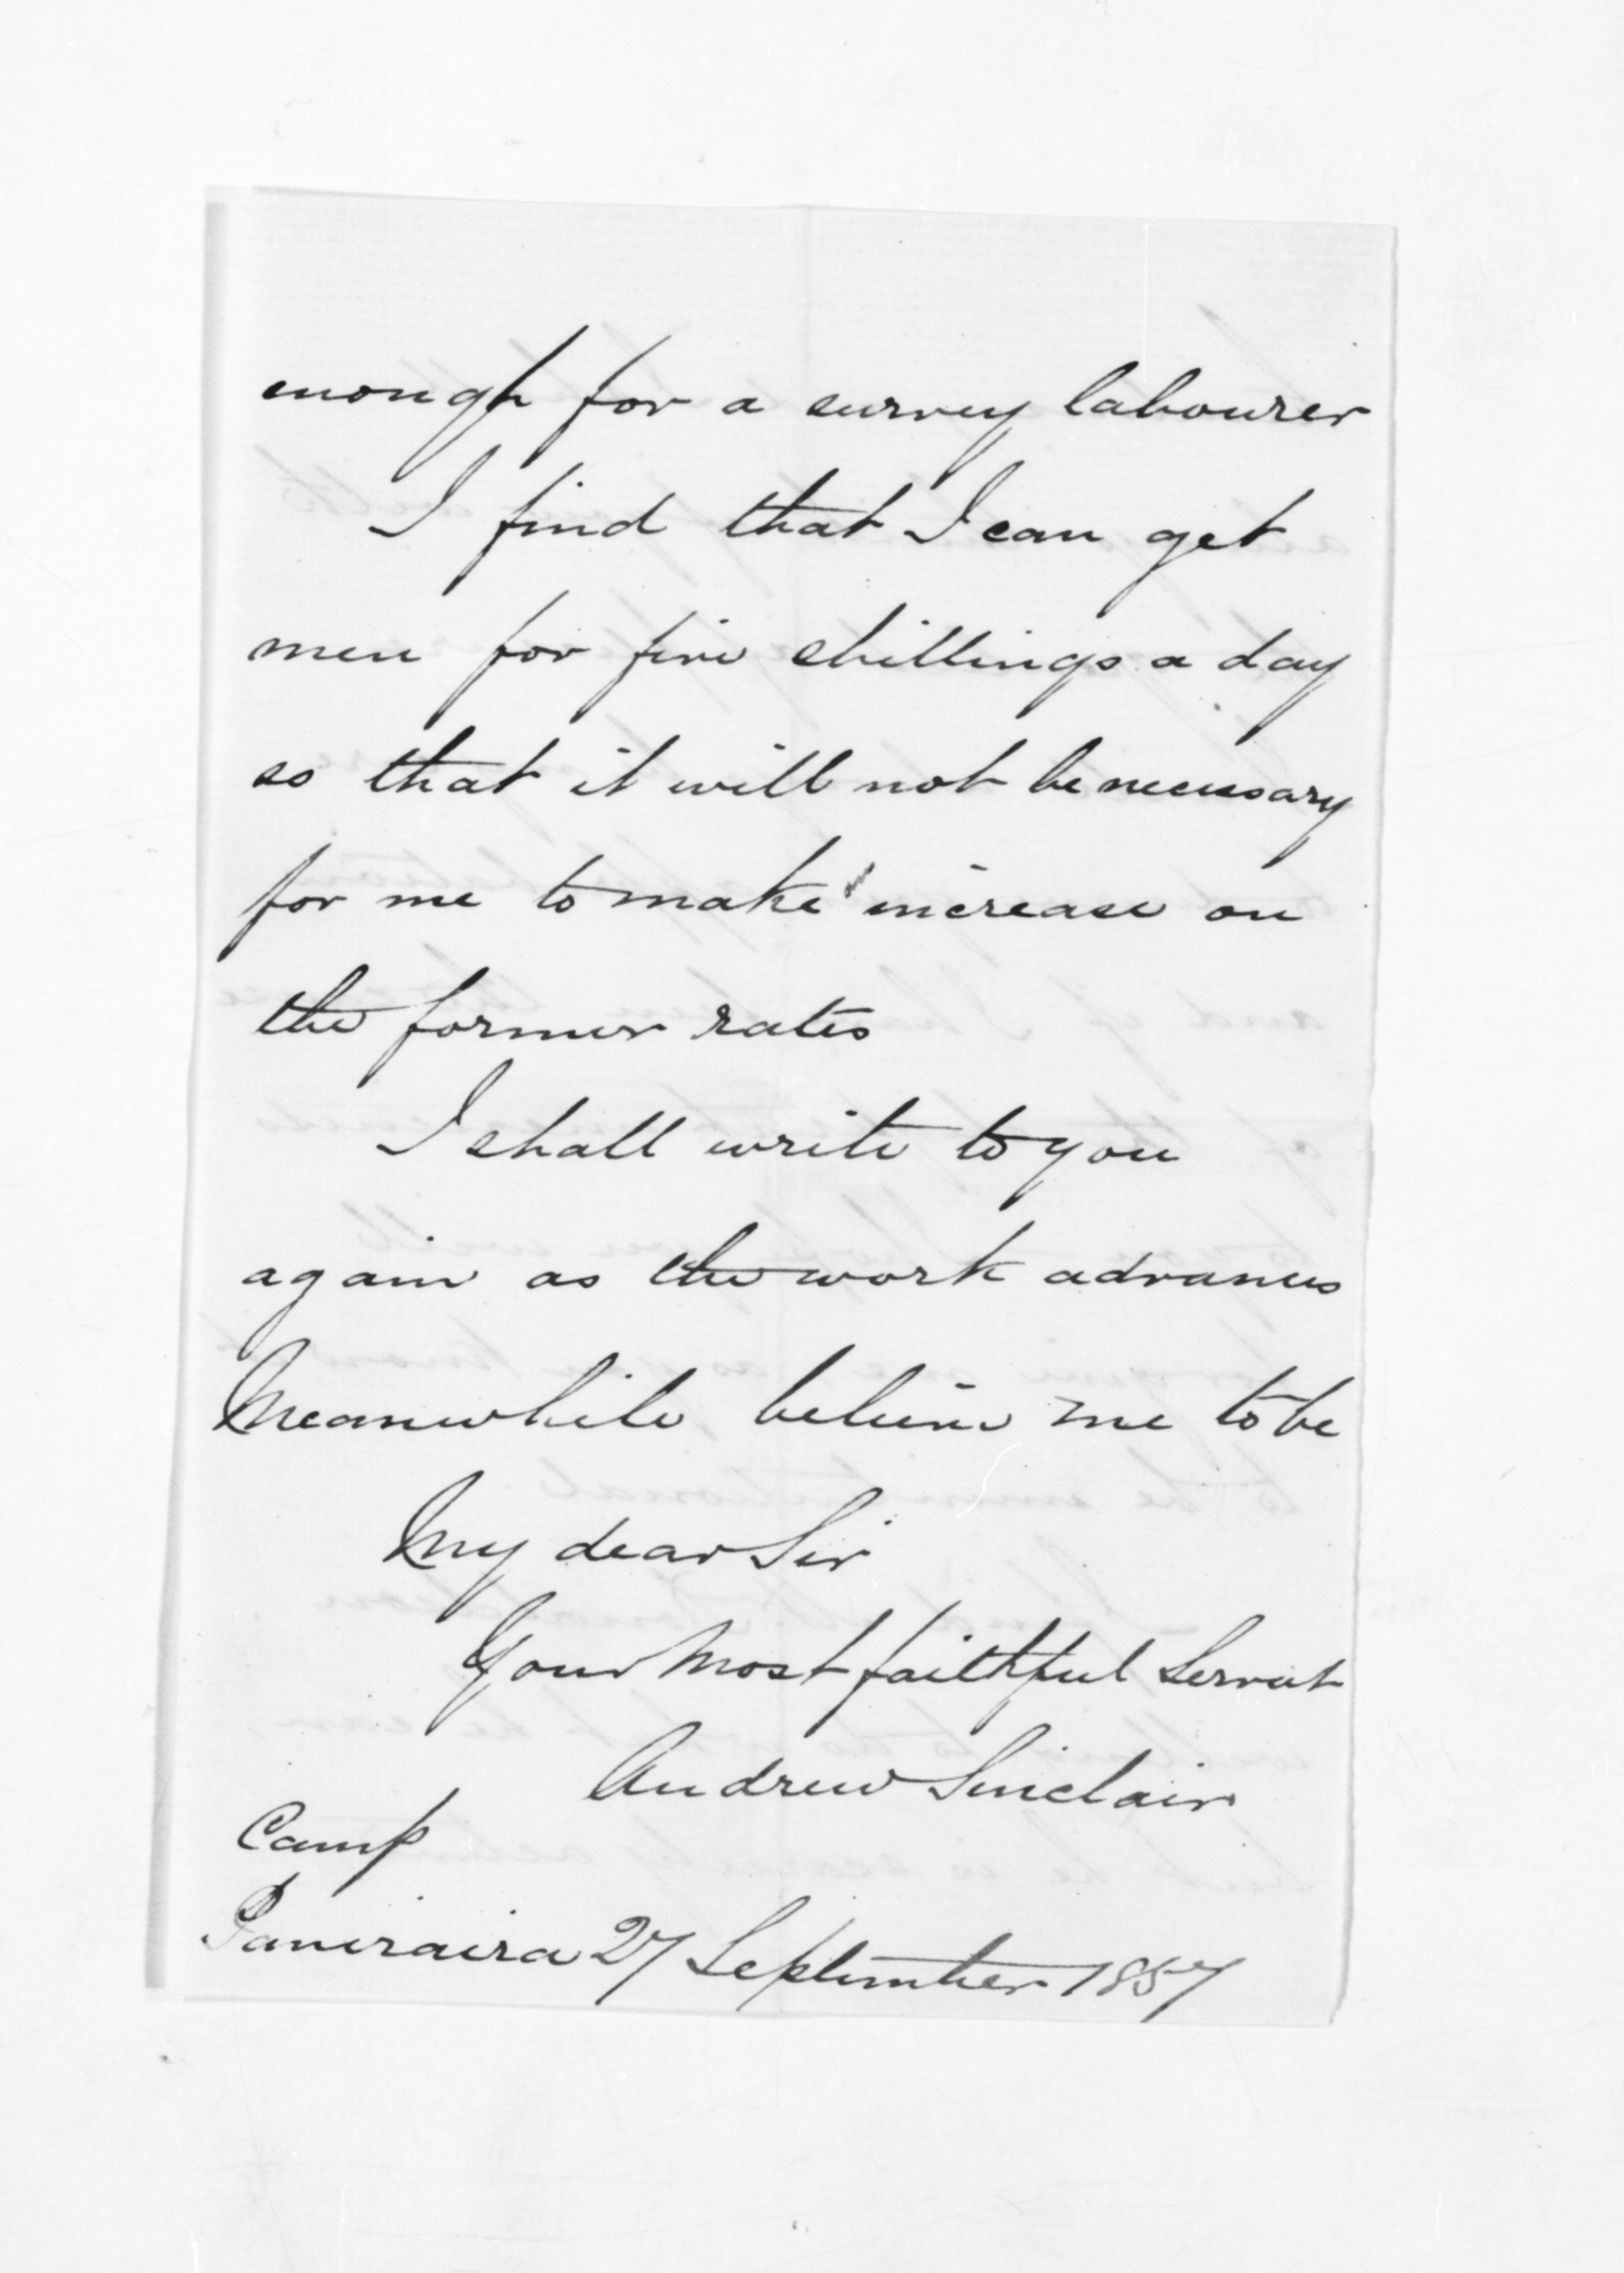 enough for a survey labourer
I find that I can get
men for five shillings a day
so that it will not be necessary
for me to make an increase on
the former rates
I shall write to you
again as the work advances
Meanwhile believe me to be
My dear Sir
Your most faithful Servat
Andrew Sinclair
Camp
27 September 1857